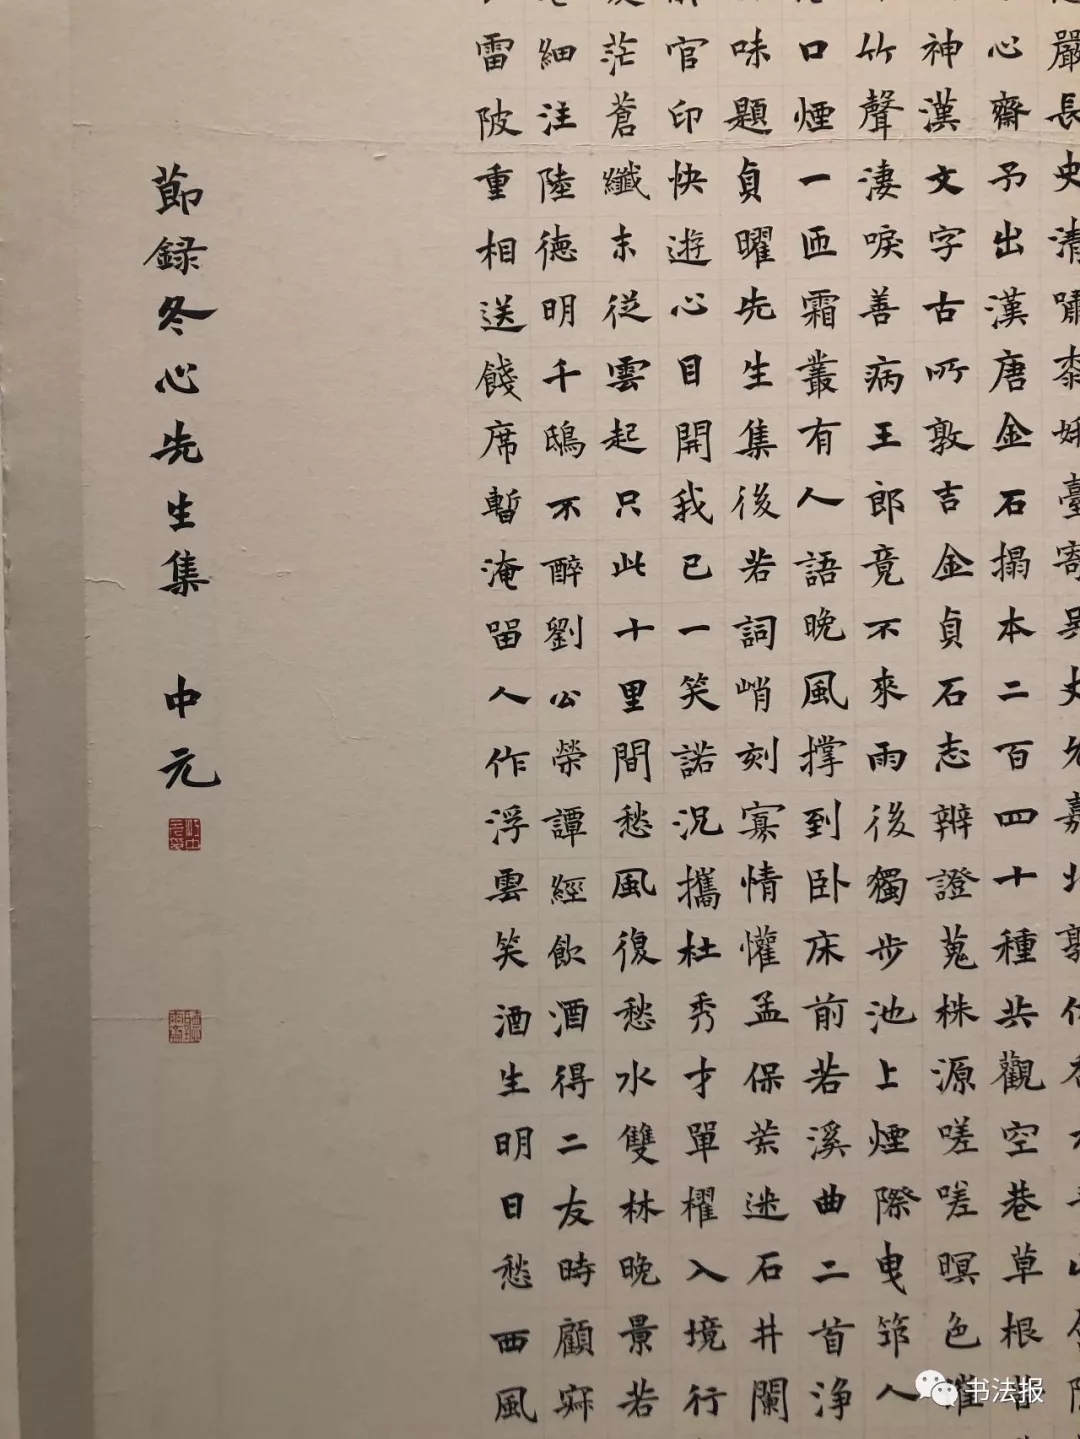 嚴長史清嘯
心齋予出漢唐金石搨本二百四十種共觀空巷草根昔
神漢文字古所敦吉金貞石志辨證蒐株源嗟嗟暝色
竹聲淒唳善病王郎竟不來雨後獨步池上煙際曳筇人
口煙一匝霜叢有人語晚風撑到卧床前若溪曲二首浄
味題貞曜先生集後若詞峭刻寡情懽孟保柴迷石井闌
官印快遊心目開我已一笑諾況攜杜秀才單櫂入境行
茫蒼纖末從雲起只此十里間愁風復愁水雙林晚景若
細注陸德明千鴟不醉劉公榮譚經飲酒得二友時顧寐
雷陂重相送餞席暫淹留人作浮雲笑酒生明日愁西風
節録冬心先生集 中元
书法报